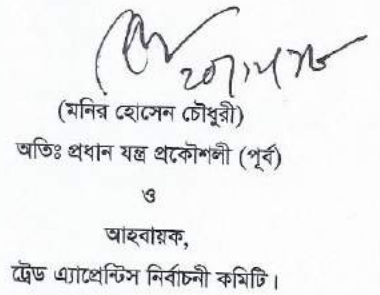 (মনির হোসেন চৌধুরী)
অতিঃ প্রধান যন্ত্র প্রকৌশলী (পূর্ব)
ও
আহবায়ক,
ট্রেড এ্যাপ্রেন্টিস নির্বাচনী কমিটি।